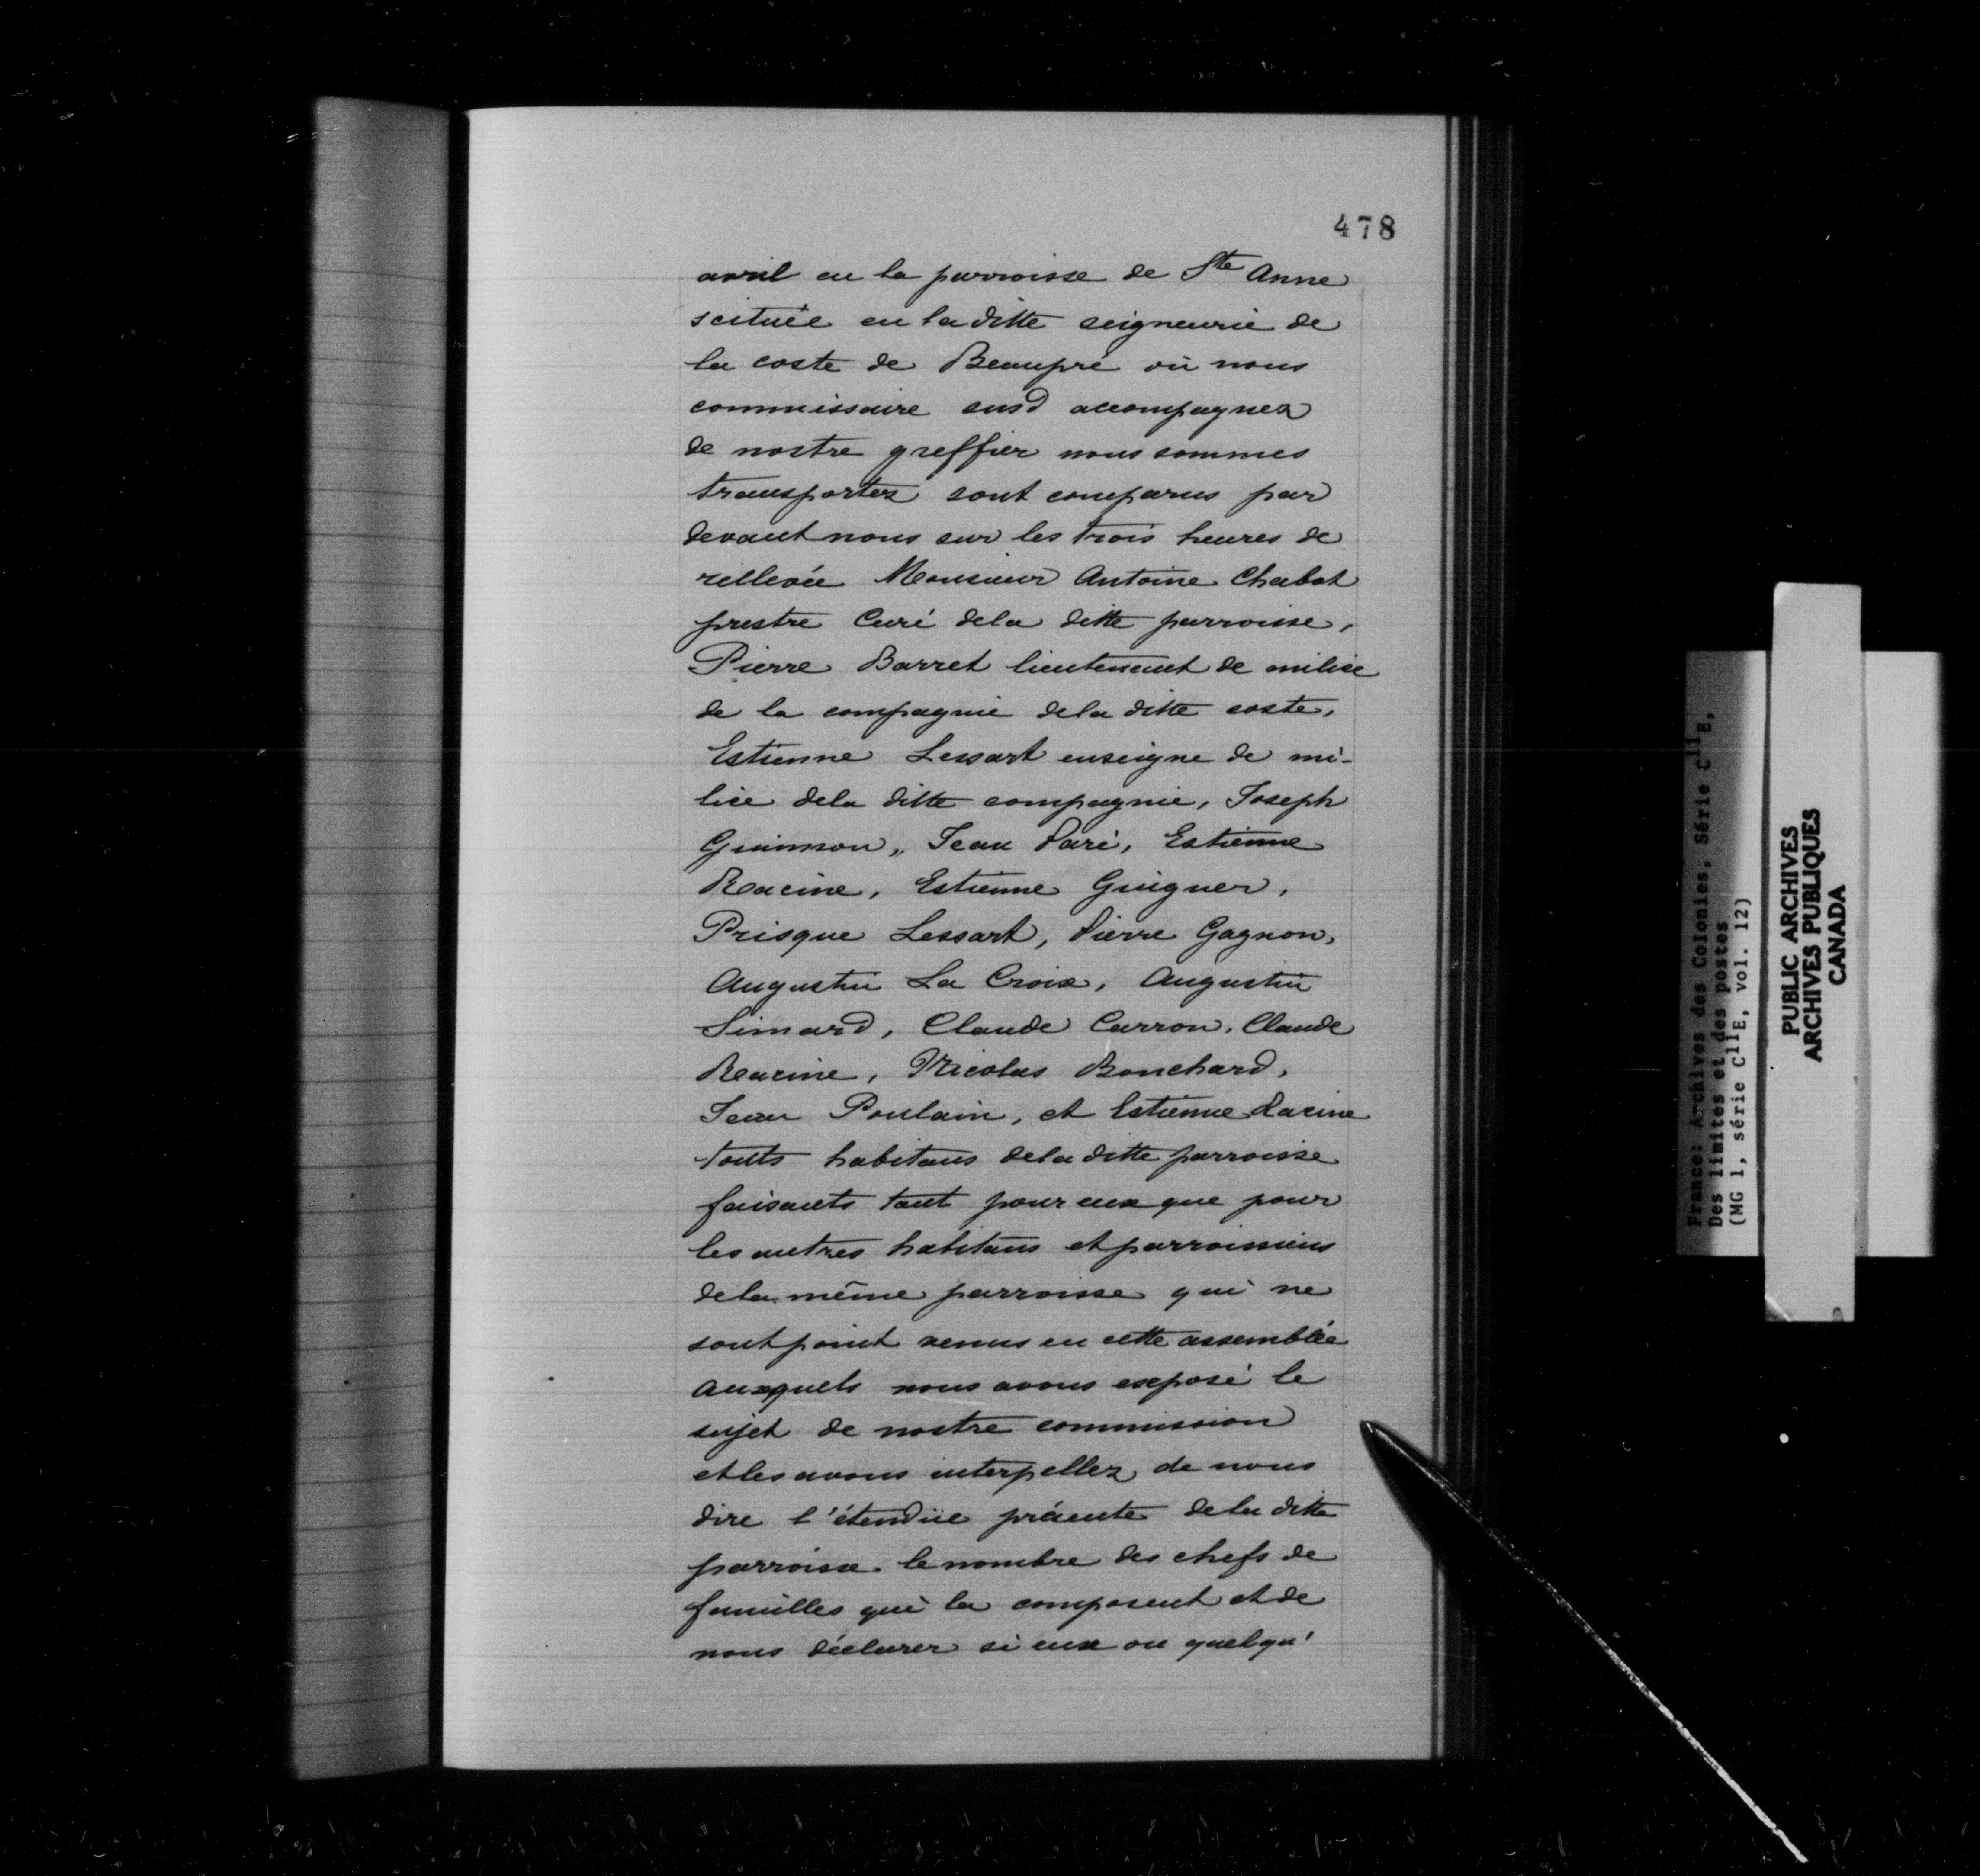 478
avril en la parroisse de Ste Anne
scituée en la ditte seigneurie de
la coste de Beaupré où nous
commissaire susd accompagnez
de nostre greffier nous sommes
transportez sont comparus par
devant nous sur les trois heures de
rellevée Monsieur Antoine Chabot
prestre Curé dela ditte parroisse,
Pierre Barret lieutenant de milice
de la compagnie dela ditte coste,
Estienne Lessart enseigne de mi-
lice dela ditte compagnie, Joseph
Guimon, Jean Paré, Estienne
Racine, Estienne Guigner,
Prisque Lessart, Pierre Gagnon,
Augustin La Croix, Augustin
Simard, Claude Carron, Claude
Racine, Nicolas Bouchard,
Jean Poulain, et Estienne Racine
touts habitans dela ditte parroisse
faisants tant pour eux que pour
les autres habitans et parroissiens
dela même parroisse qui ne
sont point venus en cette assemblée
auxquels nous avons exposé le
sujet de nostre commission
et les avons interpellez de nous
dire l'étendüe présente dela ditte
parroisse le nombre des chefs de
familles qui la composent et de
nous déclarer si eux ou quelqu'
France: Archives des Colonies, Série C11E,
Des limites et des postes
(MG 1, série C11E, vol. 12)
PUBLIC ARCHIVES
ARCHIVES PUBLIQUES
CANADA